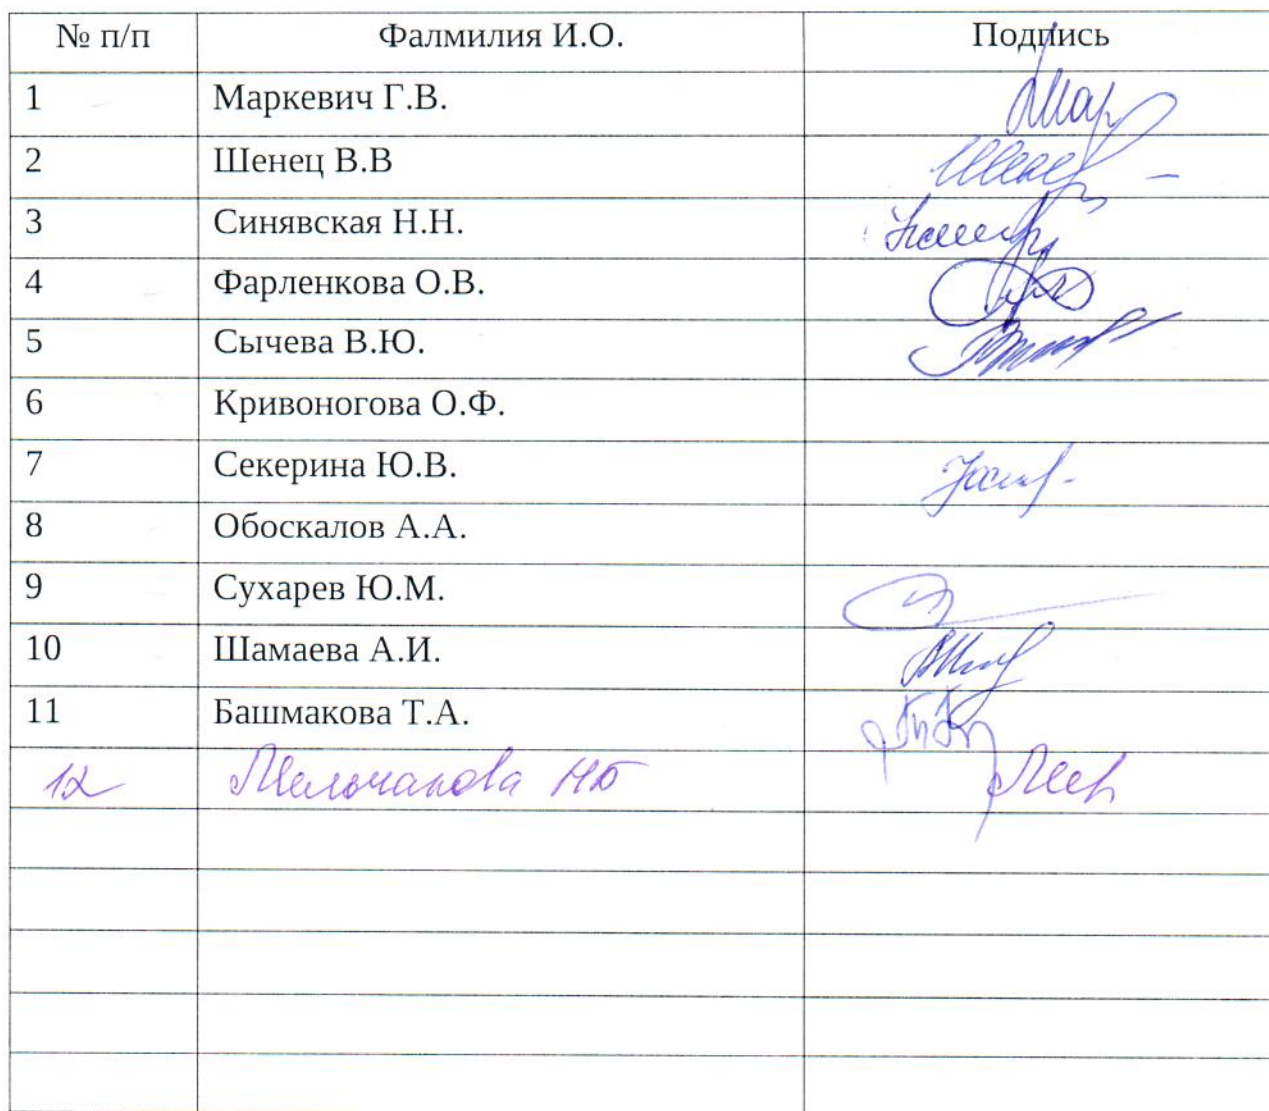 № п/п Фалмилия И.О. Подпись
1 Маркевич Г.В.
2 Шенец В.В
3 Синявская Н.Н.
4 Фарленкова О.В.
5 Сычева В.Ю.
6 Кривоногова О.Ф.
7 Секерина Ю.В.
8 Обоскалов А.А.
9 Сухарев Ю.М.
10 Шамаева А.И.
11 Башмакова Т.А.
12 Мельчакова НБ